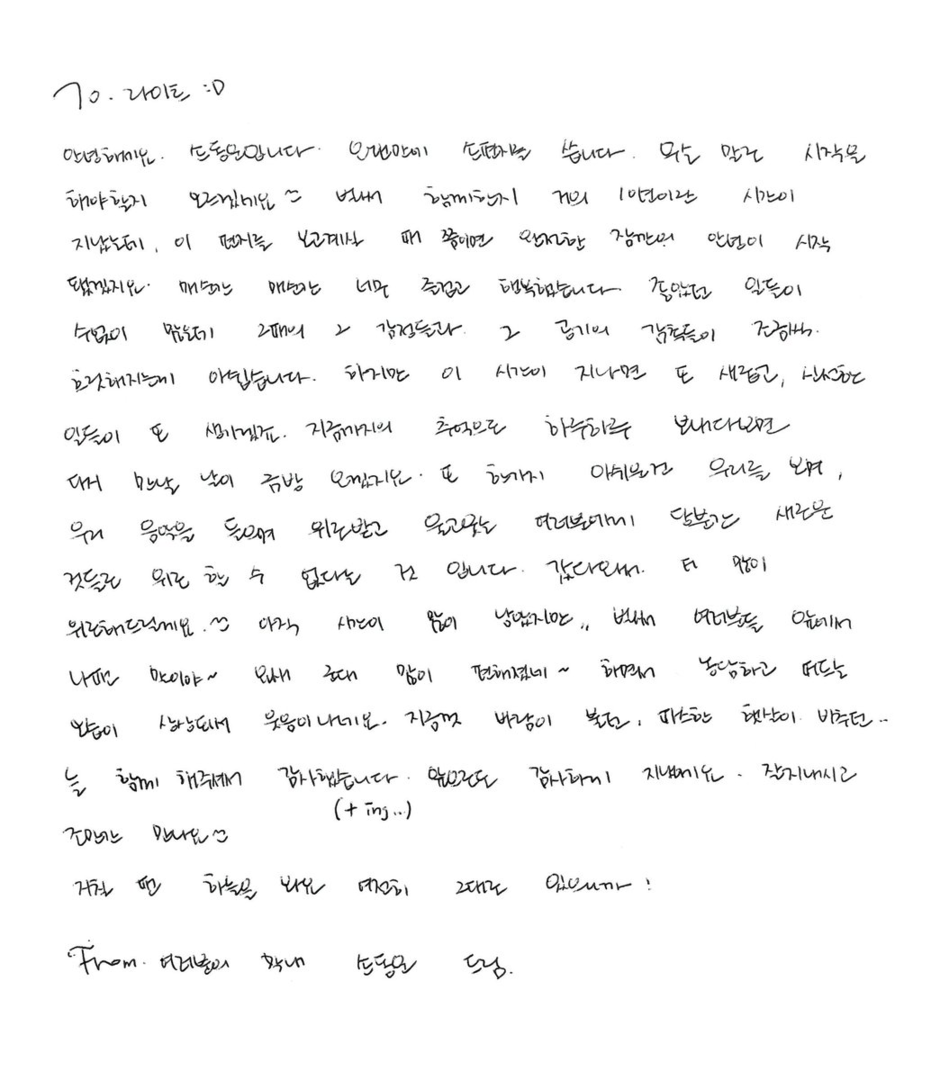 To. 라이트 :D
안녕하세요. 손동운입니다. 오랜만에 손편지를 씁니다. 무슨 말로 시작을
해야할지 모르겠네요 벌써 함께한지 거의 10년이란 시간이
지났는데, 이 편지를 보고계실 때 쯤이면 완전한 잠깐의 안녕이 시작
됐겠지요. 매순간 매순간 너무 즐겁고 행복했습니다. 좋았던 일들이
수없이 많은데 그때의 그 감정들과 그 공기의 감촉들이 조금씩
흐릿해지는게 아쉽습니다. 하지만 이 시간이 지나면 또 새롭고, 신선한
일들이 또 생기겠죠. 지금까지의 추억으로 하루하루 보내다보면
다시 만날 날이 금방 오겠지요. 또 한가지 아쉬운건 우리를 보며,
우리 음악을 들으며 위로받고 울고웃는 여러분에게 당분간 새로운
것들로 위로 할 수 없다는 것 입니다. 갔다와서 더 많이
위로해드릴게요. 아직 시간이 많이 남았지만,, 벌써 여러분들 앞에서
나때는 말이야~ 요새 군대 많이 편해졌네~ 하면서 농담하고 떠드는
모습이 상상되서 웃음이나네요. 지금껏 바람이 불던, 따스한 햇살이 비추던..
늘 함께 해주셔서 감사했습니다. 앞으로도 감사하게 지낼게요. 잘지내시고
(+ ing..)
조만간 만나요
지칠 땐 하늘을 봐요 여전히 그대로 있으니까!
From. 여러분의 막내 손동운 드림.